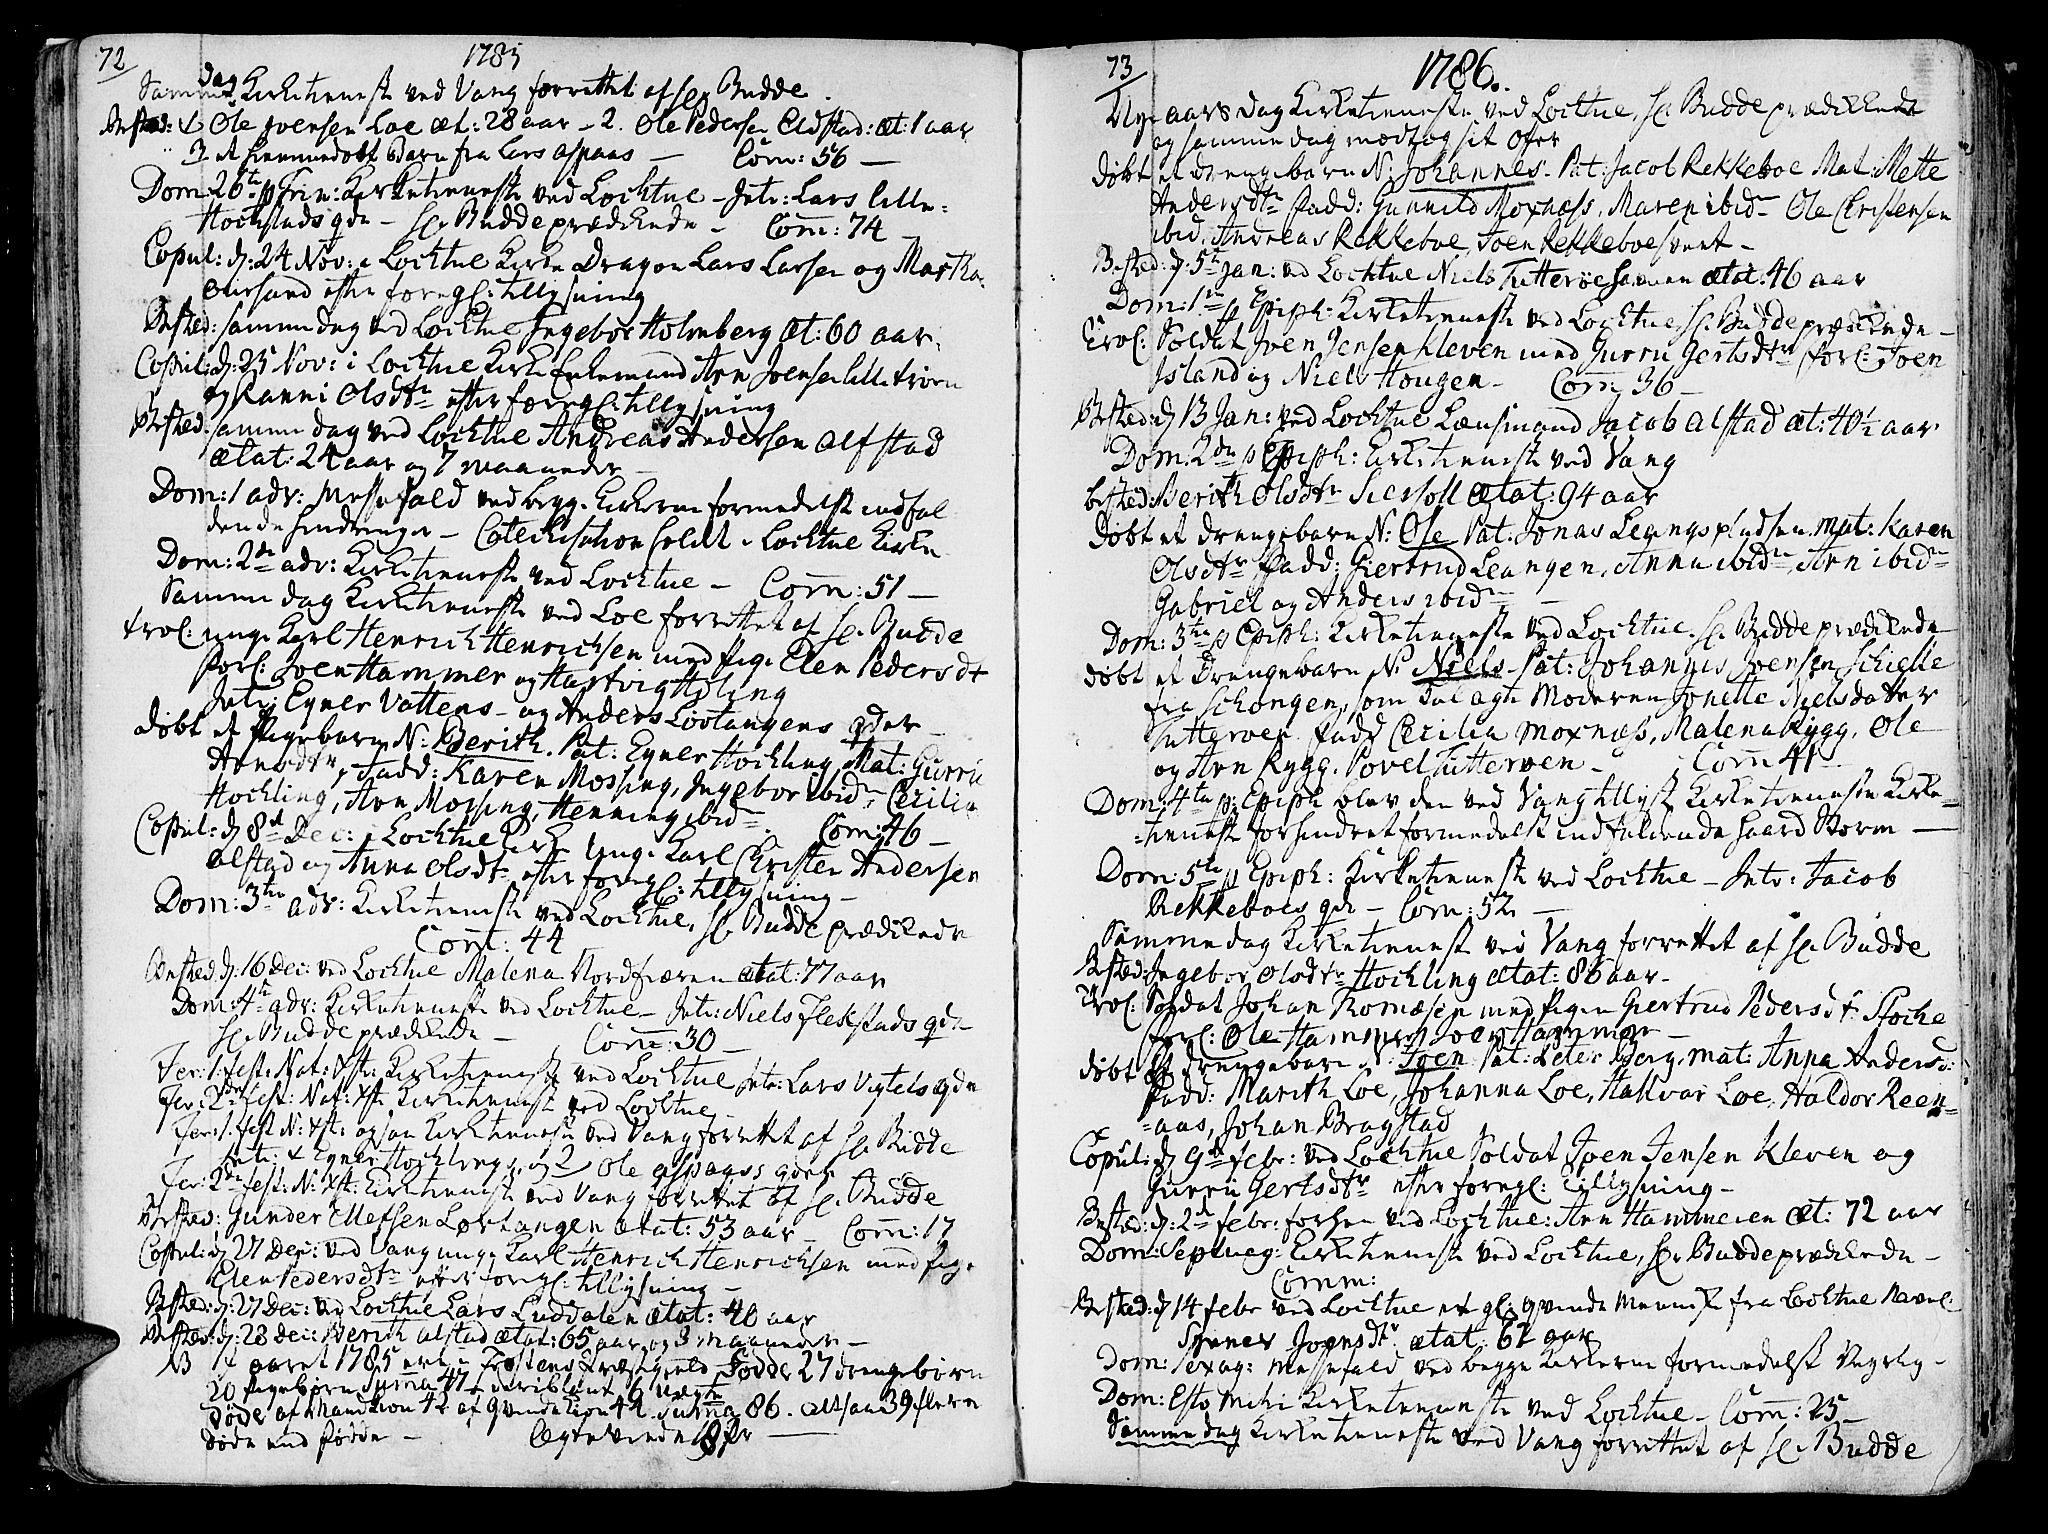 72
1785
Samme dag Kirketieneste ved Vang forrettet af Hr. Budde.
Bested: 1. Ole Joensen Loe æt: 28 aar - 2. Ole Pedersen Aldstad: æt: 1 aar
3 et hiemmedøbt Barn fra Lars Aspaas - Com̄: 56 -
Dom: 26te p Trin: Kirketieneste ved Lochtue - Intr: Lars lille-
Hochstads qde - Hr. Budde prædikede - Com̄: 74
Copul: d: 24 Nov: i Lochtue Kirke Dragon Lars Larsen og Martha
efter foregl: tillysning
Bested: samme dag ved Lochtue Ingebor Holmberg æt: 60 aar.
Copul: d: 25 Nov: i Lochtue Kirke Enkemand Arn Joensen
og Ranni Olsdtr efter foregl: tillysning
Bested: samme dag ved Lochtue Andreas Andersen Alfstad
ætat: 24 aar og 7 maaneder -
Dom: 1 adv: Messefald ved begge Kirkerne formedelst indfal-
dende hindringer - Catechisation holdt i Lochtue Kirke
Dom: 2de adv: Kirketieneste ved Lochtue - Com̄: 51 -
Samme dag Kirketieneste ved Loe forrettet af Hr. Budde
Trol: unge Karl Henrich Henrichsen med Pige Elen Pedersdt
forl: Joen Hammer og Hartvig Høling
Intr: Egner Vattens - og Anders Lørtangens qder
Døbt et Pigebarn N: Berith. Pat: Egner Hochling, Mat: Gurru
Arnsdtr, Fadd: Karen Mossing, Ingebor ibidm, Cecilia
Hochling, Arn Mossing, Henning ibidm - Com̄: 46 -
Copul: d 8de Dec: i Lochtue Kirke Unge Karl Christen Andersen
Alstad og Anna Olsdtr efter foregl: tillysning -
Dom: 3tie adv: Kirketieneste ved Lochtue, Hr Budde prædikede
Com̄: 44
Bested d: 16 Dec: ved Lochtue Malena Nordfiæren ætat: 77 aar
Dom: 4te adv: Kirketieneste ved Lochtue - Intr: Niels Flekstads qde
Hr. Budde prædikede - Com̄: 30 -
Fer: 1. fest: Nat: Xsti: Kirketieneste ved Lochtue Intr: Lars Vigtels qde
Fer: 2den fest: Nat: Xsti Kirketieneste ved Lochtue -
Fer: 1. fest N: Xsti ogsaa Kirketieneste ved Vang forrettet af Hr. Budde
Intr: 1 Egner Hochlings, og 2 Ole Aspaass qder
Fer: 2de fest: N: Xsti: Kirketieneste ved Vang forrettet af Hr. Budde
Bested: Gunder Ellefsen Lørtangen ætat: 53 aar - Com̄: 17
Copul: d 27 Dec: ved Vang unge Karl Henrich Henrichsen med Pige
Elen Pedersdtr efter foregl: tillysning -
Bested: d: 27 Dec: ved Lochtue Lars Luddalen ætat: 40 aar
Bested: d: 28 Dec: Berith Alstad ætat: 65 aar og 3 maaneder -
NB I aaret 1785 ere i Frostens Præstegield Fødde 27 drengebørn
20 Pigebørn Summa 47
Døde af Mandkiøn 42 af Qvindekiøn 44. Summa 86. altsaa 39 flere
døde end fødde - Ægteviede 18 Par -
73
1786.
Nyaars dag Kirketieneste ved Lochtue, Hr. Budde prædikede
og samme dag modtog sit Ofer
Døbt et drengebarn N: Johannes. Pat: Jacob Rekkeboe Mat: Mette
Andersdtr Fadd: Gunnild Moxness, Maren ibidm Ole Christensen
ibid, Andreas Rekkeboe, Joen Rekkeboesvent -
Bested: d: 5te Jan: ved Lochtue Niels Tutterøe ætat: 46 aar
Dom: 1ma p Epiph: Kirketieneste ved Lochtue, Hr. Budde prædikede -
Trol: Soldat Joen Jensen Kleven med Gurru Gertsdtr forl: Joen
Island og Niels Hougen - Com̄ 36 -
Bested: d 13 Jan: ved Lochtue Lænsmand Jacob Alstad æt: 40½ aar
Dom: 2de p Epiph: Kirketieneste ved Vang
bested: Berith Olsdtr ætat: 94 aar
Døbt et drengebarn N: Ole Pat: Jonas Leangspladsen. Mat: Karen
Olsdtr Fadd: Giertrud Leangen, Anna ibidm, Arn ibidm
Gabriel og Anders ibidm -
Dom: 3tie p Epiph: Kirketieneste ved Lochtue. Hr. Budde prædikede
døbt et Drengebarn N: Niels - Pat: Johannes Joensen Schielle
fra Schongen, som udlagt Moderen Jonette Nielsdatter
Tutterøen. Fadd Cecilia Moxness, Malena Rygg, Ole
og Arn Rygg. Povel Tutterøen - Com̄ 41 -
Dom: 4te p: Epiph blev den ved Vang tillyste Kirketieneste Kirke-
-tieneste forhindret formedelst indfaldende haard Storm -
Dom: 5te p Epiph: Kirketieneste ved Lochtue - Intr: Jacob
Rekkeboes qde - Com̄: 52 -
Samme dag Kirketieneste ved Vang forrettet af Hr. Budde
Bested: Ingebor Olsdtr Hochling ætat: 86 aar -
Trol: Soldat Johan Thomæsen med Pigen Giertrud Pedersdt: Stoche
forl: Ole Hammer Joen Hammer -
døbt et Drengebarn N: Joen Pat: Peter Berg. mat: Anna Andersd:
Fadd: Marith Loe, Johanna Loe, Halvar Loe, Haldor Reen-
-aas, Johan Bragstad
Copul: d 9de Febr: ved Lochtue Soldat Joen Jensen Kleven og
Gurru Gertsdtr efter foregl: Tillysning -
Bested: d: 2de febr: forhen ved Lochtue: Arn Hammeren æt: 72 aar
Dom: Septuag: Kirketieneste ved Lochtue, Hr. Budde prædikede -
Com̄:
Bested: d 14 Febr ved Lochtue et gl: qvinde Menniske fra Lochtue
Joensdtr ætat: 62 aar
Dom: Sexag: Messefald ved begge Kirkerne formedelst
Dom: Esto mihi Kirketieneste ved Lochtue - Com̄: 25 -
Samme dag Kirketieneste ved Vang forrettet af Hr. Budde